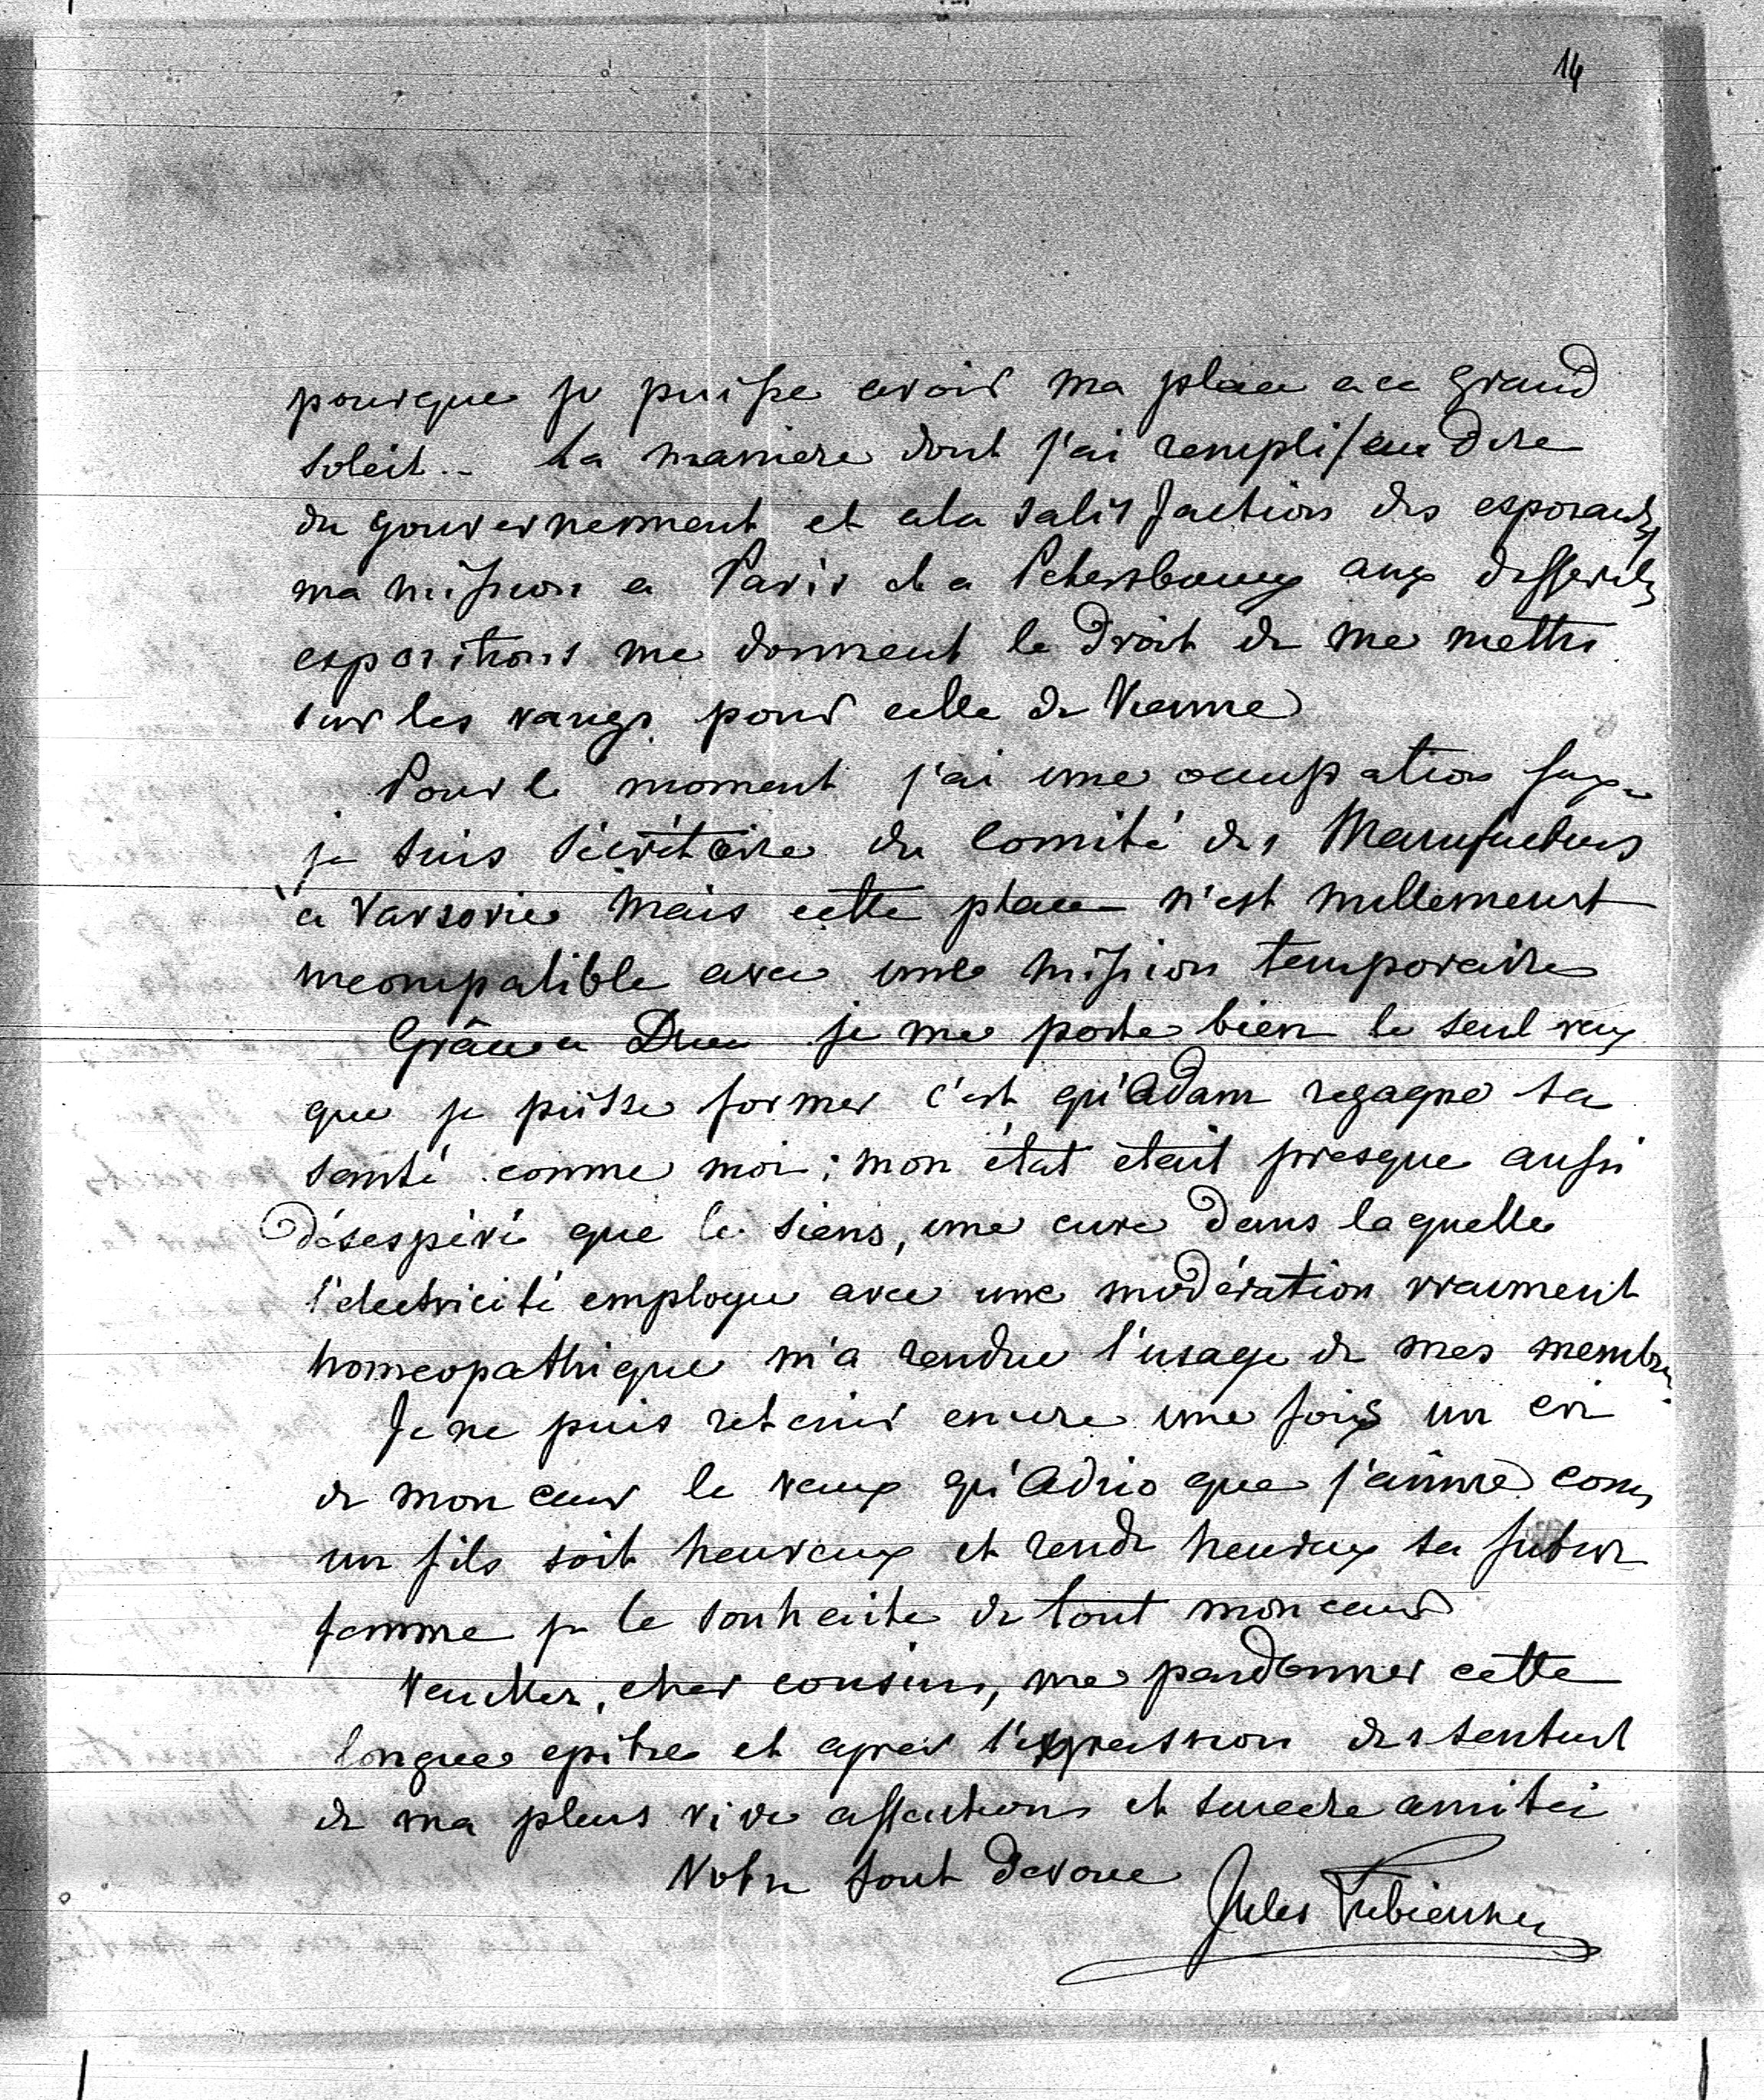 14
pourque je puisse avoir ma place a ce grand
soleil.. La maniere dont j'ai rempli /au dire
du gouvernement et a la satisfaction des exposants/
ma mission a Paris et a Petersbourg aux differents
expositions me donnent le droit de me mettre
sur les rangs pour celle de Vienne
Pour le moment j'ai une occupation fixe
je suis sécrétaire du Comité des Manufactures
à Varsovie mais cette place n'est nullement
incompatible avec une mission temporaire
Grâce a Dieu je me porte bien le seul vœux
que je puisse former c'est qu'Adam regagne sa
santé comme moi; mon état était presque aussi
désespéré que le siens, une cure dans laquelle
l'electricité employe avec une modération vraiment
homeopathique m'a rendue l'usage de mes membres
Je ne puis retenir encore une fois un cri
de mon cœur le vœux qu'Adzio que j'aime com
un fils soit heureux et rende heureux sa future
femme je le souhaite de tout mon cœur
Veuillez, cher cousin, me pardonner cette
longue epitre et l'expression des
de ma plus vive affection et sincere amitié
Votre tout devoue
Jules Łubieński